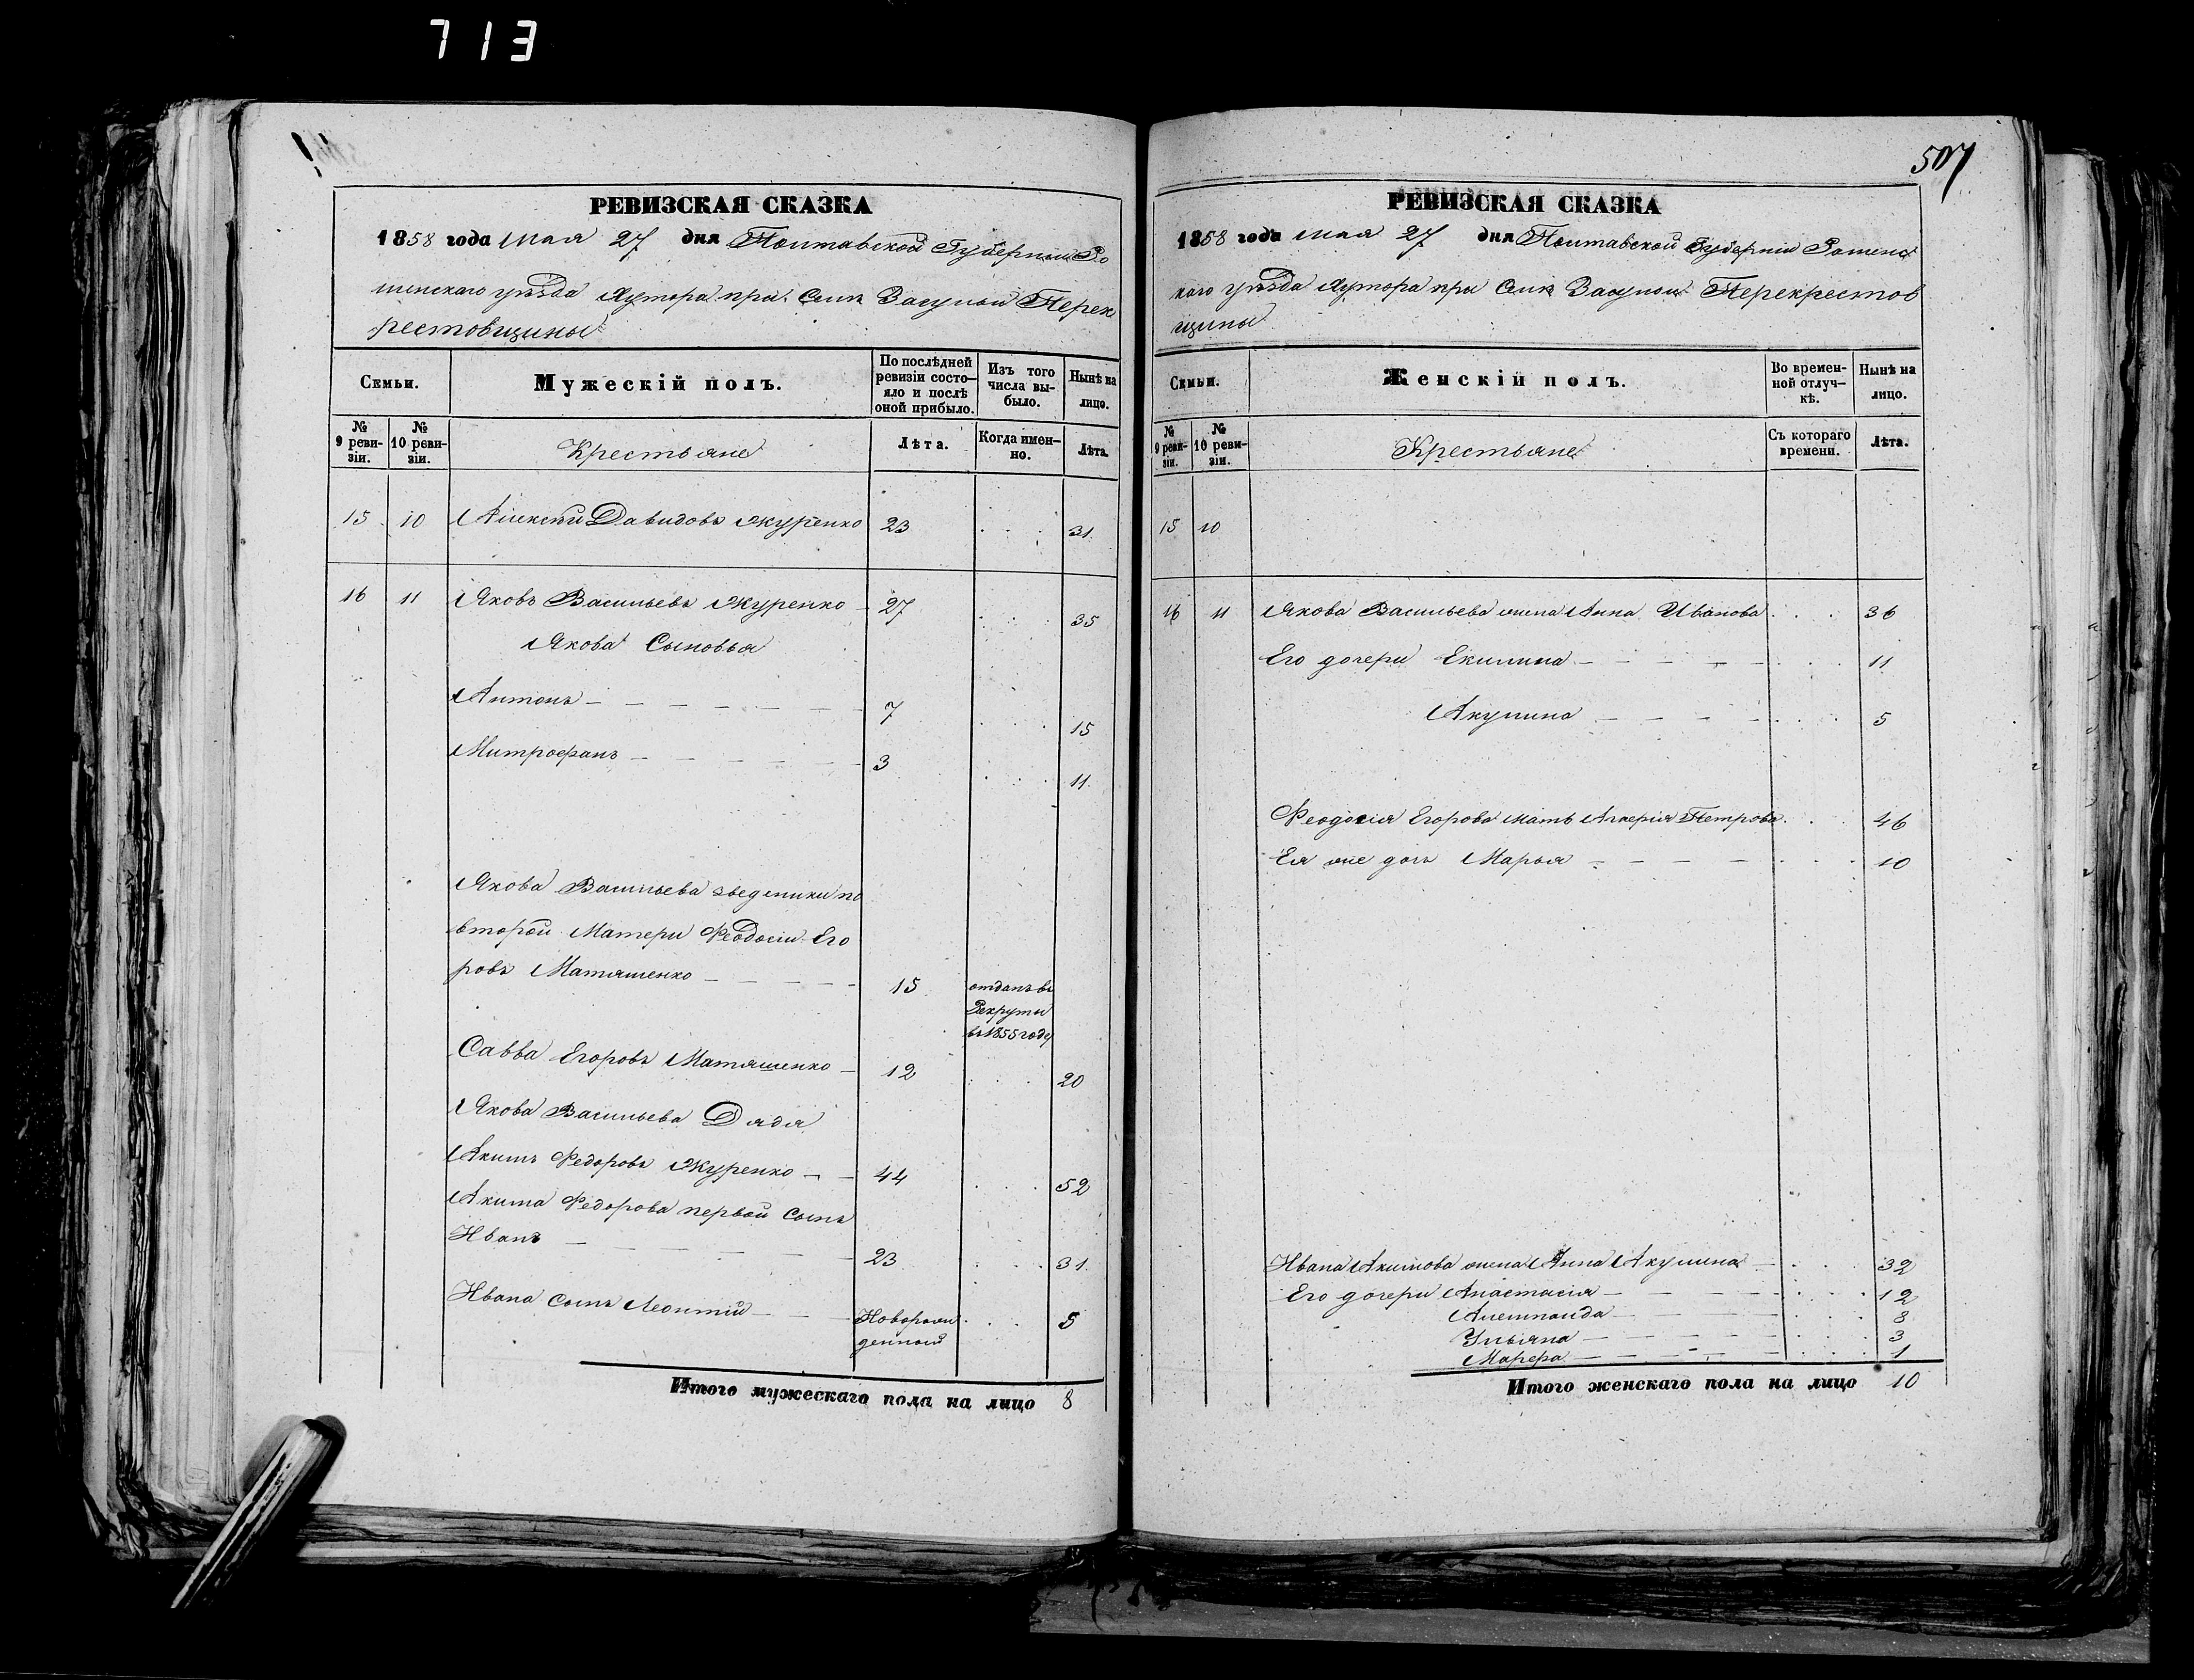 713
507
РЕВИЗСКАЯ СКАЗКА
1858 года Мая 27 дня Полтавской Губернии Ро
менскаго уѣзда Хутора при Селѣ Засульи Перек
рестовщины
Семьи.
Мужескій полъ.
По послѣдней ревизіи состо-
яло и послѣ оной прибыло.
Изъ того числа вы-
было.
Нынѣ на лицо.
№ 9 реви-
зіи.
№ 10 реви-
зіи.
Крестьяне
Лѣта.
Когда имен-
но.
Лѣта.
15 10 Алексѣй Давидовъ Журенко 23 . . . 31.
16 11 Яковъ Васильевъ Журенко 27 . . . 35
Якова Сыновья
Антонъ 7 . . . 15
Митрофанъ 3 . . . 11.
Якова Васильева зведеники по
второй Матери Феодосіи Его
ровъ Матяшенко 15 отданъ въ
Рекруты
въ 1855 году
Савва Егоровъ Матяшенко 12 . . . 20
Якова Васильева Дядя
Акимъ Федоровъ Журенко 44 . . . 52
Акима Федорова первой сынъ
Иванъ 23 . . . 31.
Ивана сынъ Леонтій Новорож
денный . . . 5
Итого мужескаго пола на лицо 8
РЕВИЗСКАЯ СКАЗКА
1858 года Мая 27 дня Полтавской Губерніи Роменс
каго уѣзда Хутора при Селѣ Засульи Перекрестов
щины
Семьи.
Женскій полъ.
Во времен-
ной отлуч-
кѣ.
Нынѣ на лицо.
№ 9 реви-
зіи.
№ 10 реви-
зіи.
Крестьяне
Съ котораго времени.
Лѣта.
15 10
16 11 Якова Васильева жена Анна Иванова . . . 36
Его дочери Екилина . . . 11
Акулина . . . 5
Феодосія Егорова мать Петрова . . . 46
Ея же дочь Марья . . . 10
Ивана Акимова жена Анна Акулина . . . 32
Его дочери Анастасія . . . 12
8
Ульяна . . . 3
1
Итого женскаго пола на лицо 10